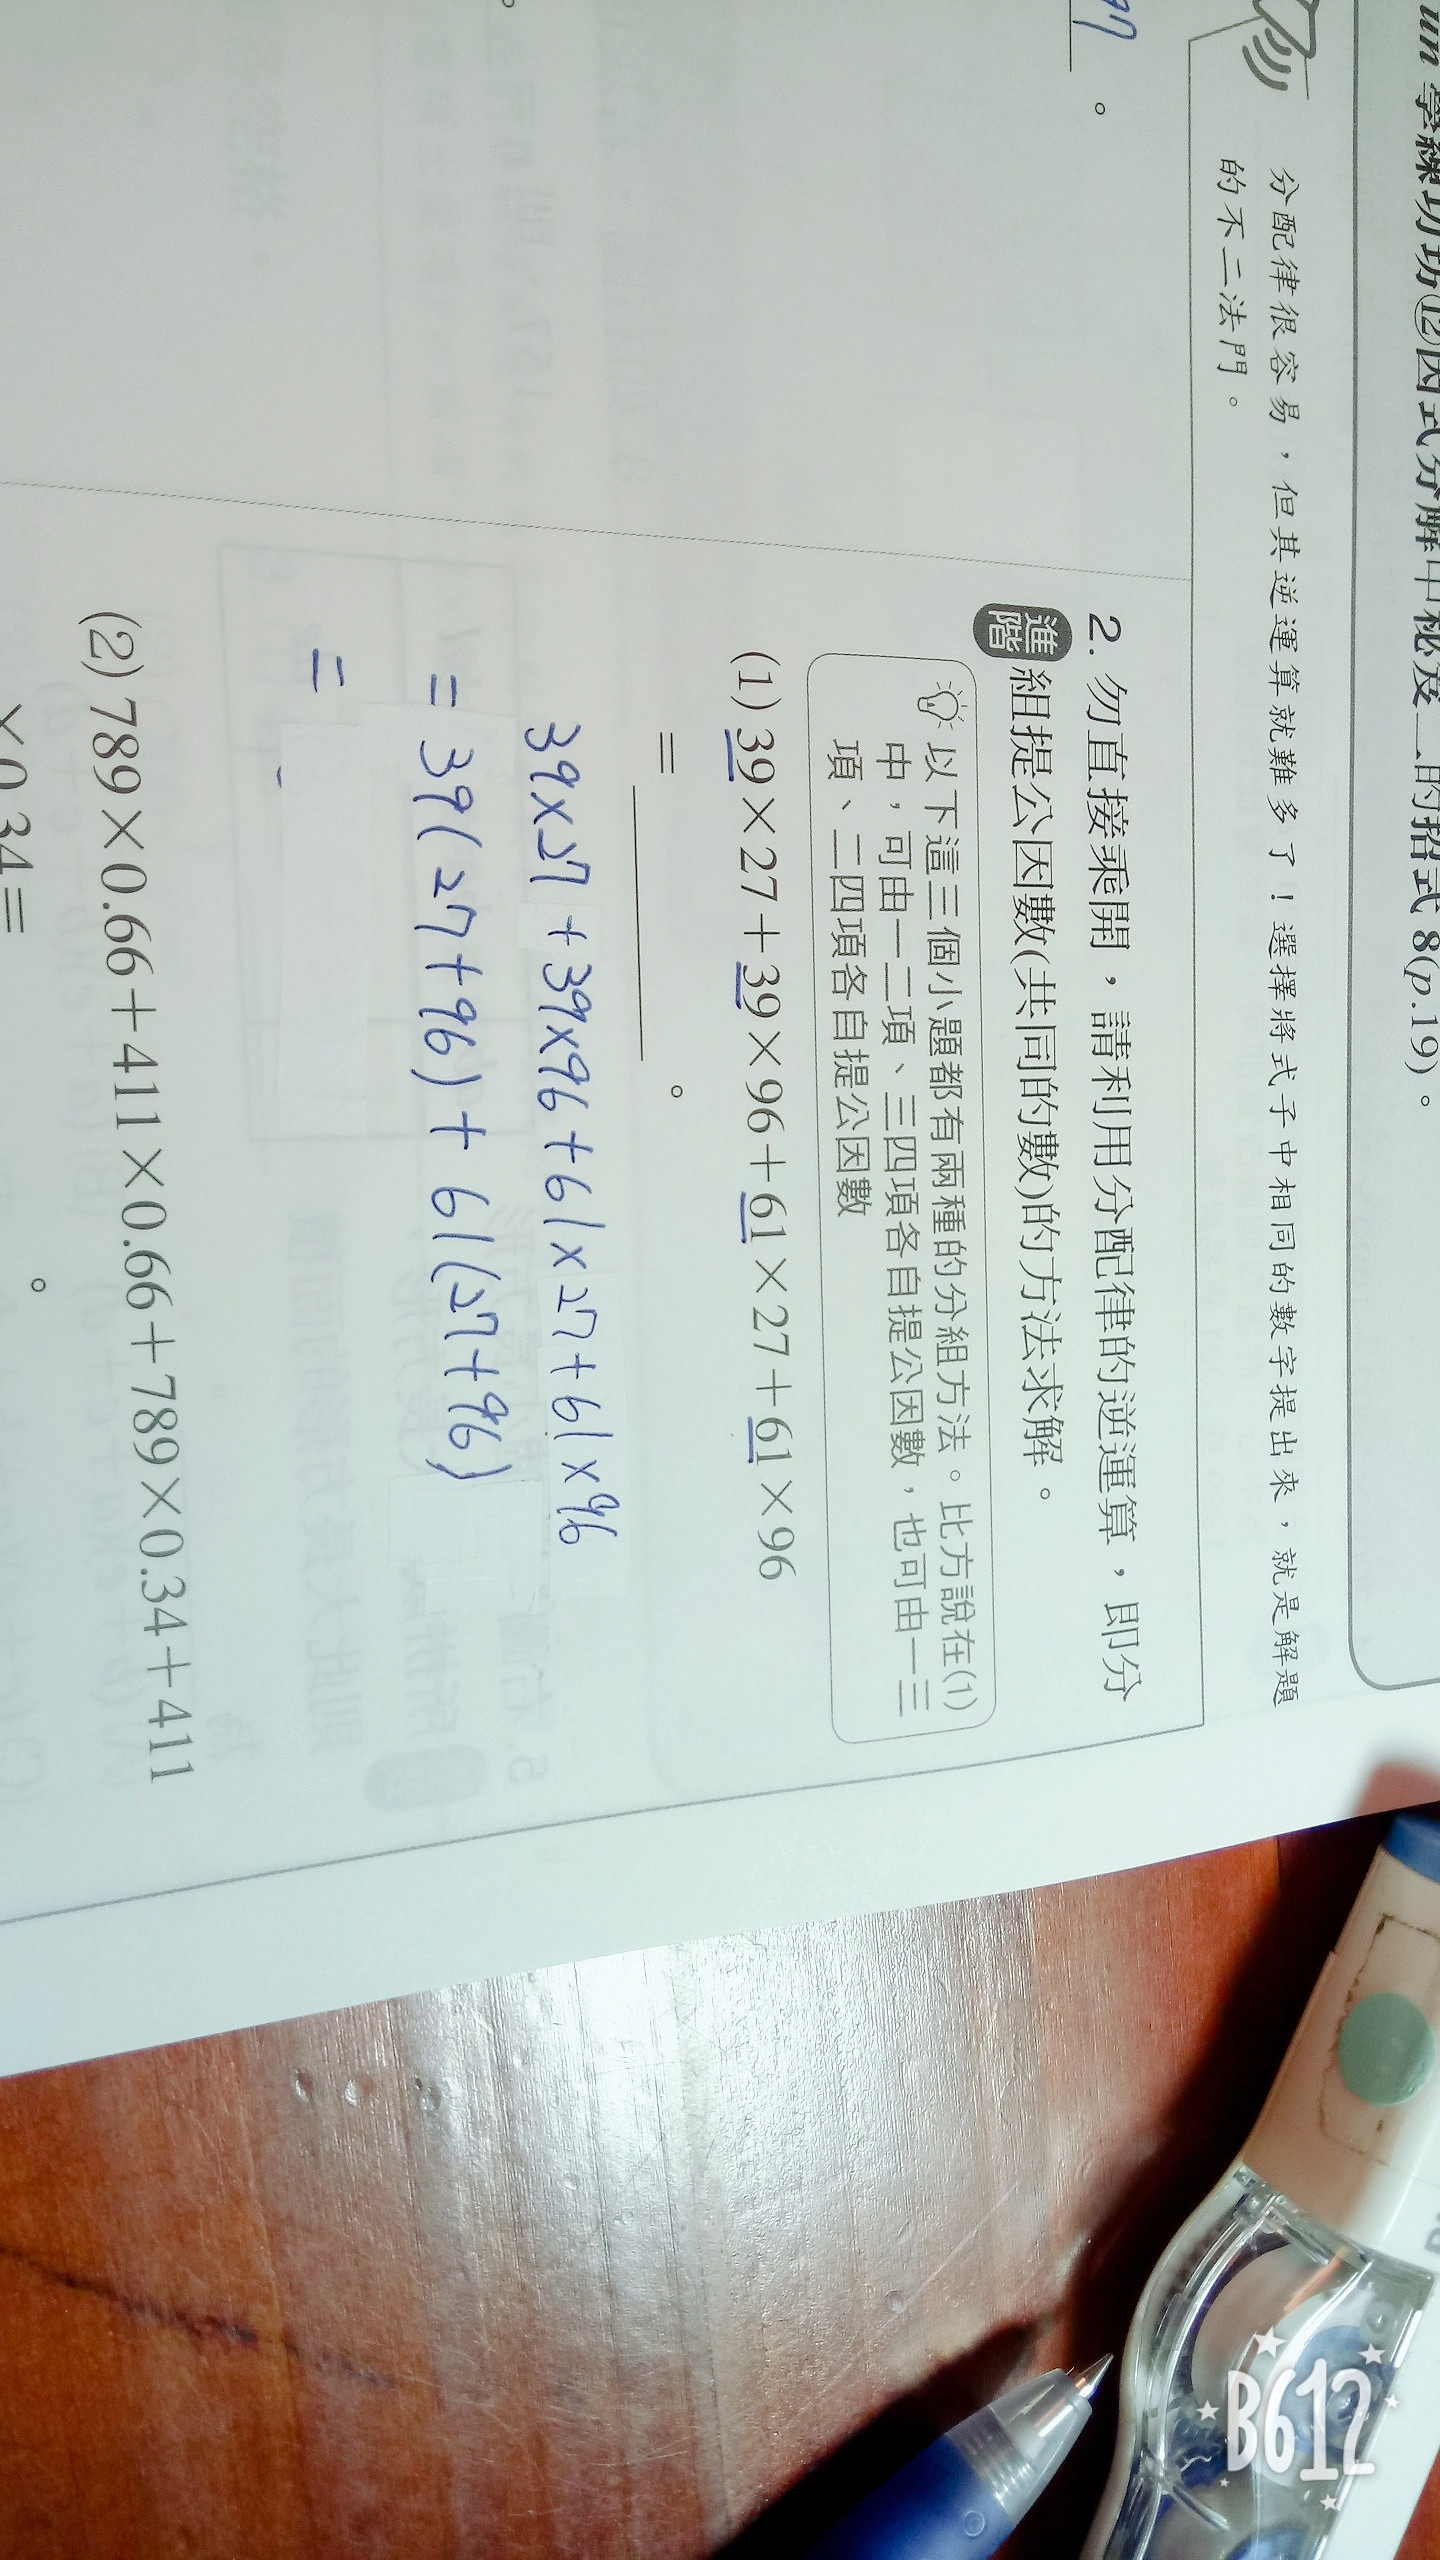 學練功坊⑫因式分解中秘笈二的招式 8(p.19)。
分配律很容易，但其逆運算就難多了！選擇將式子中相同的數字提出來，就是解題
的不二法門。
97 。
2. 勿直接乘開，請利用分配律的逆運算，即分
進階 組提公因數(共同的數)的方法求解。
以下這三個小題都有兩種的分組方法。比方說在(1)
中，可由一二項、三四項各自提公因數，也可由一三
項、二四項各自提公因數
(1) 39×27+39×96+61×27+61×96
= 。
39×27+39×96+61×27+61×96
=39(27+96)+61(27+96)
=
(2) 789×0.66+411×0.66+789×0.34+411
×0.34= 。
B612